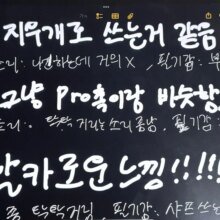 지우개로 쓰는거 같음
소리: 나긴하는데 거의 X, 필기감: 부
그냥 Pro촉이랑 비슷함
탁탁 거리는 소리 좀남, 필기감:
날카로운 느낌!!!!
좀 탁탁거림, 필기감: 샤프쓰는